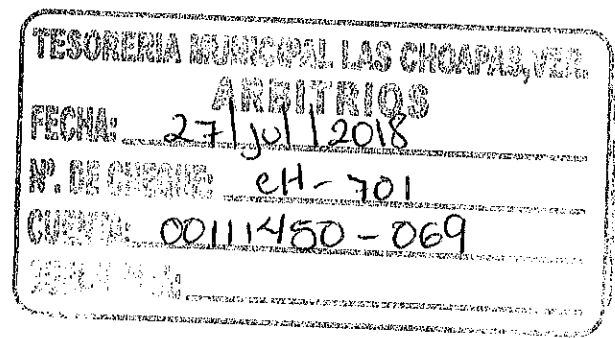 TESORERIA MUNICIPAL LAS CHOAPAS, VER.
ARBITRIOS
FECHA: 27/jul/2018
Nº. DE CHEQUE: CH-701
CUENTA: 00111450-069